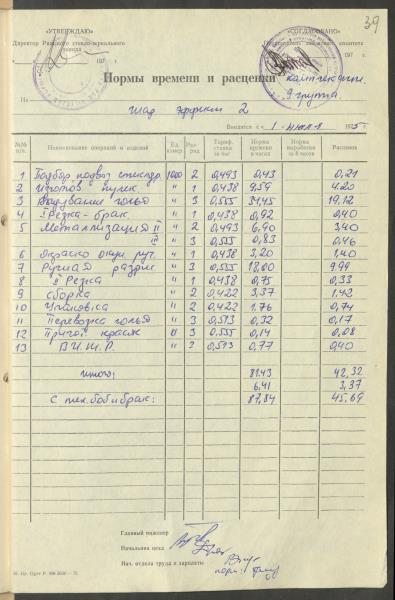 39
«УТВЕРЖДАЮ»
«СОГЛАСОВАНО»
Директор Рижского стекло-зеркального завода
197 г.
197 г.
Нормы времени и расценки
9 группа.
На шар эффект 2
Вводятся с « 1 » июля 1975 г.
№№ п/п. Наименование операций и изделий Ед. измер Раз-ряд Тариф. ставка за час Норма времени в часах Норма выработки за 8 часов Расценок
1 Подбор подвоз стеклодр. 1000 2 0,493 0,43 0,21
2 Изготов. пулек " 1 0,438 9,59 4.20
3 Выдувание голья " 3 0,555 34,45 19,12
4 I Резка - брак. " 1 0,438 0,92 0,40
5 Металлизация II " 2 0,493 6,90 3,40
III " 3 0,555 0,83 0,46
6 Окраска окун. руч. " 1 0,438 3,20 1,40
7 Ручная разри. " 3 0,555 18,00 9.99
8 II Резка " 1 0,438 0,75 0,33
9 сборка " 2 0,422 3,37 1.42
10 Упаковка " 2 0,422 1.76 0,74
11 Перевозка голья " 3 0,513 0,32 0,17
12 Пригот. красок " 3 0.555 0,14 0,08
13 В.И.Ш.Р. 3 0,513 0,77 0,40
итого: 81.43 42,32
6.41 3,37
С тех. боб и брак: 87,84 45.69
Главный инженер
Начальник цеха
Нач. отдела труда и зарплаты